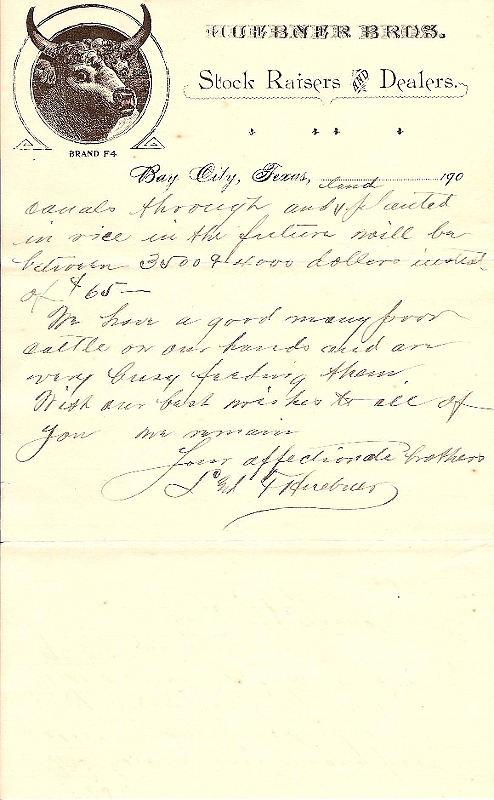 HUEBNER BROS.
Stock Raisers AND Dealers.
BRAND F4
Bay City, Texas, 190
land
canals through and planted
in rice in the future will be
between 3500 & 4000 dollars insted
of $65—
We have a good many poor
cattle on our hands and are
very busy feeding them
With our best wishes to all of
you we remain
Your affectionate brothers
Huebner